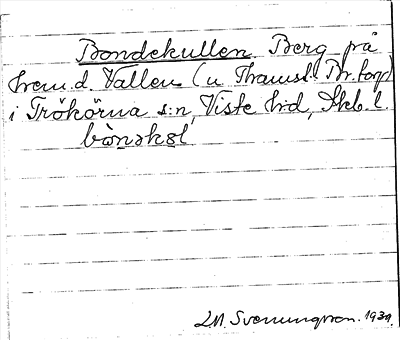 Bondekullen. Berg på
hem.d. Vallen (u Thamsl. Br.torp)
i Trökörna s:n, Viste hd, Skb. l.
bònəkəl
LM. Svenungsson. 1939.